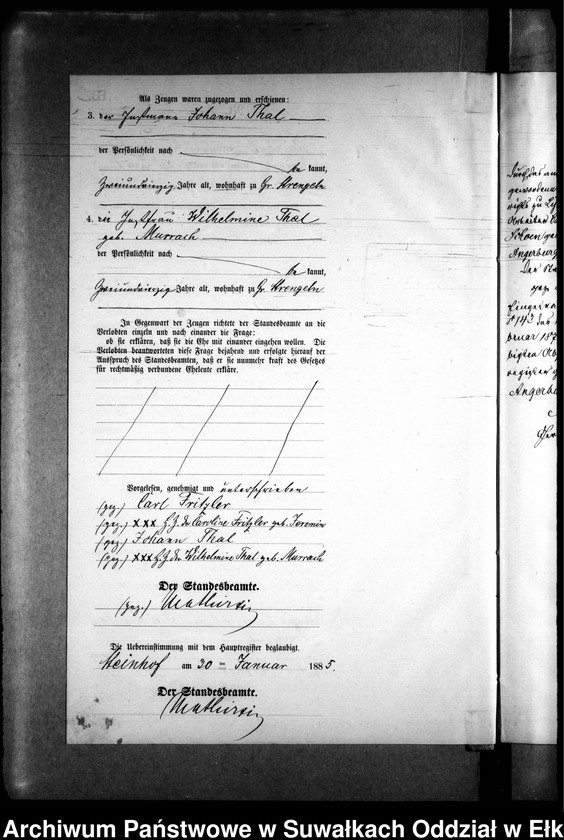 Als Zeugen waren zugezogen und erschienen:
3. der Instmann Johann Thal
der Persönlichkeit nach
be kannt,
Jahre alt, wohnhaft zu Gr. Strengeln
4. die Instfrau Wilhelmine Thal
geb. Murrach
der Persönlichkeit nach
be kannt,
Zweiundvierzig Jahre alt, wohnhaft zu Gr. Strengeln
In Gegenwart der Zeugen richtete der Standesbeamte an die
Verlobten einzeln und nach einander die Frage:
ob sie erklären, daß sie die Ehe mit einander eingehen wollen. Die
Verlobten beantworteten diese Frage bejahend und erfolgte hierauf der
Ausspruch des Standesbeamten, daß er sie nunmehr kraft des Gesetzes
für rechtmäßig verbundene Eheleute erkläre.
Vorgelesen, genehmigt und unterschrieben
(gez.) Carl Fritzler
(gez.) XXX H. Z. der Caroline Fritzler geb. Jeromin
(gez.) Johann Thal
(gez.) XXX H. Z. der Wilhelmine Thal geb. Murrach
Der Standesbeamte.
(gez.)
Die Uebereinstimmung mit dem Hauptregister beglaubigt.
Steinhof am 30 ten Januar 1885.
Der Standesbeamte.
Durch das
Angerburg
Der
Eingetra
№ 143 des
register
Angerbu
Archiwum Państwowe w Suwałkach Oddział w Ełk